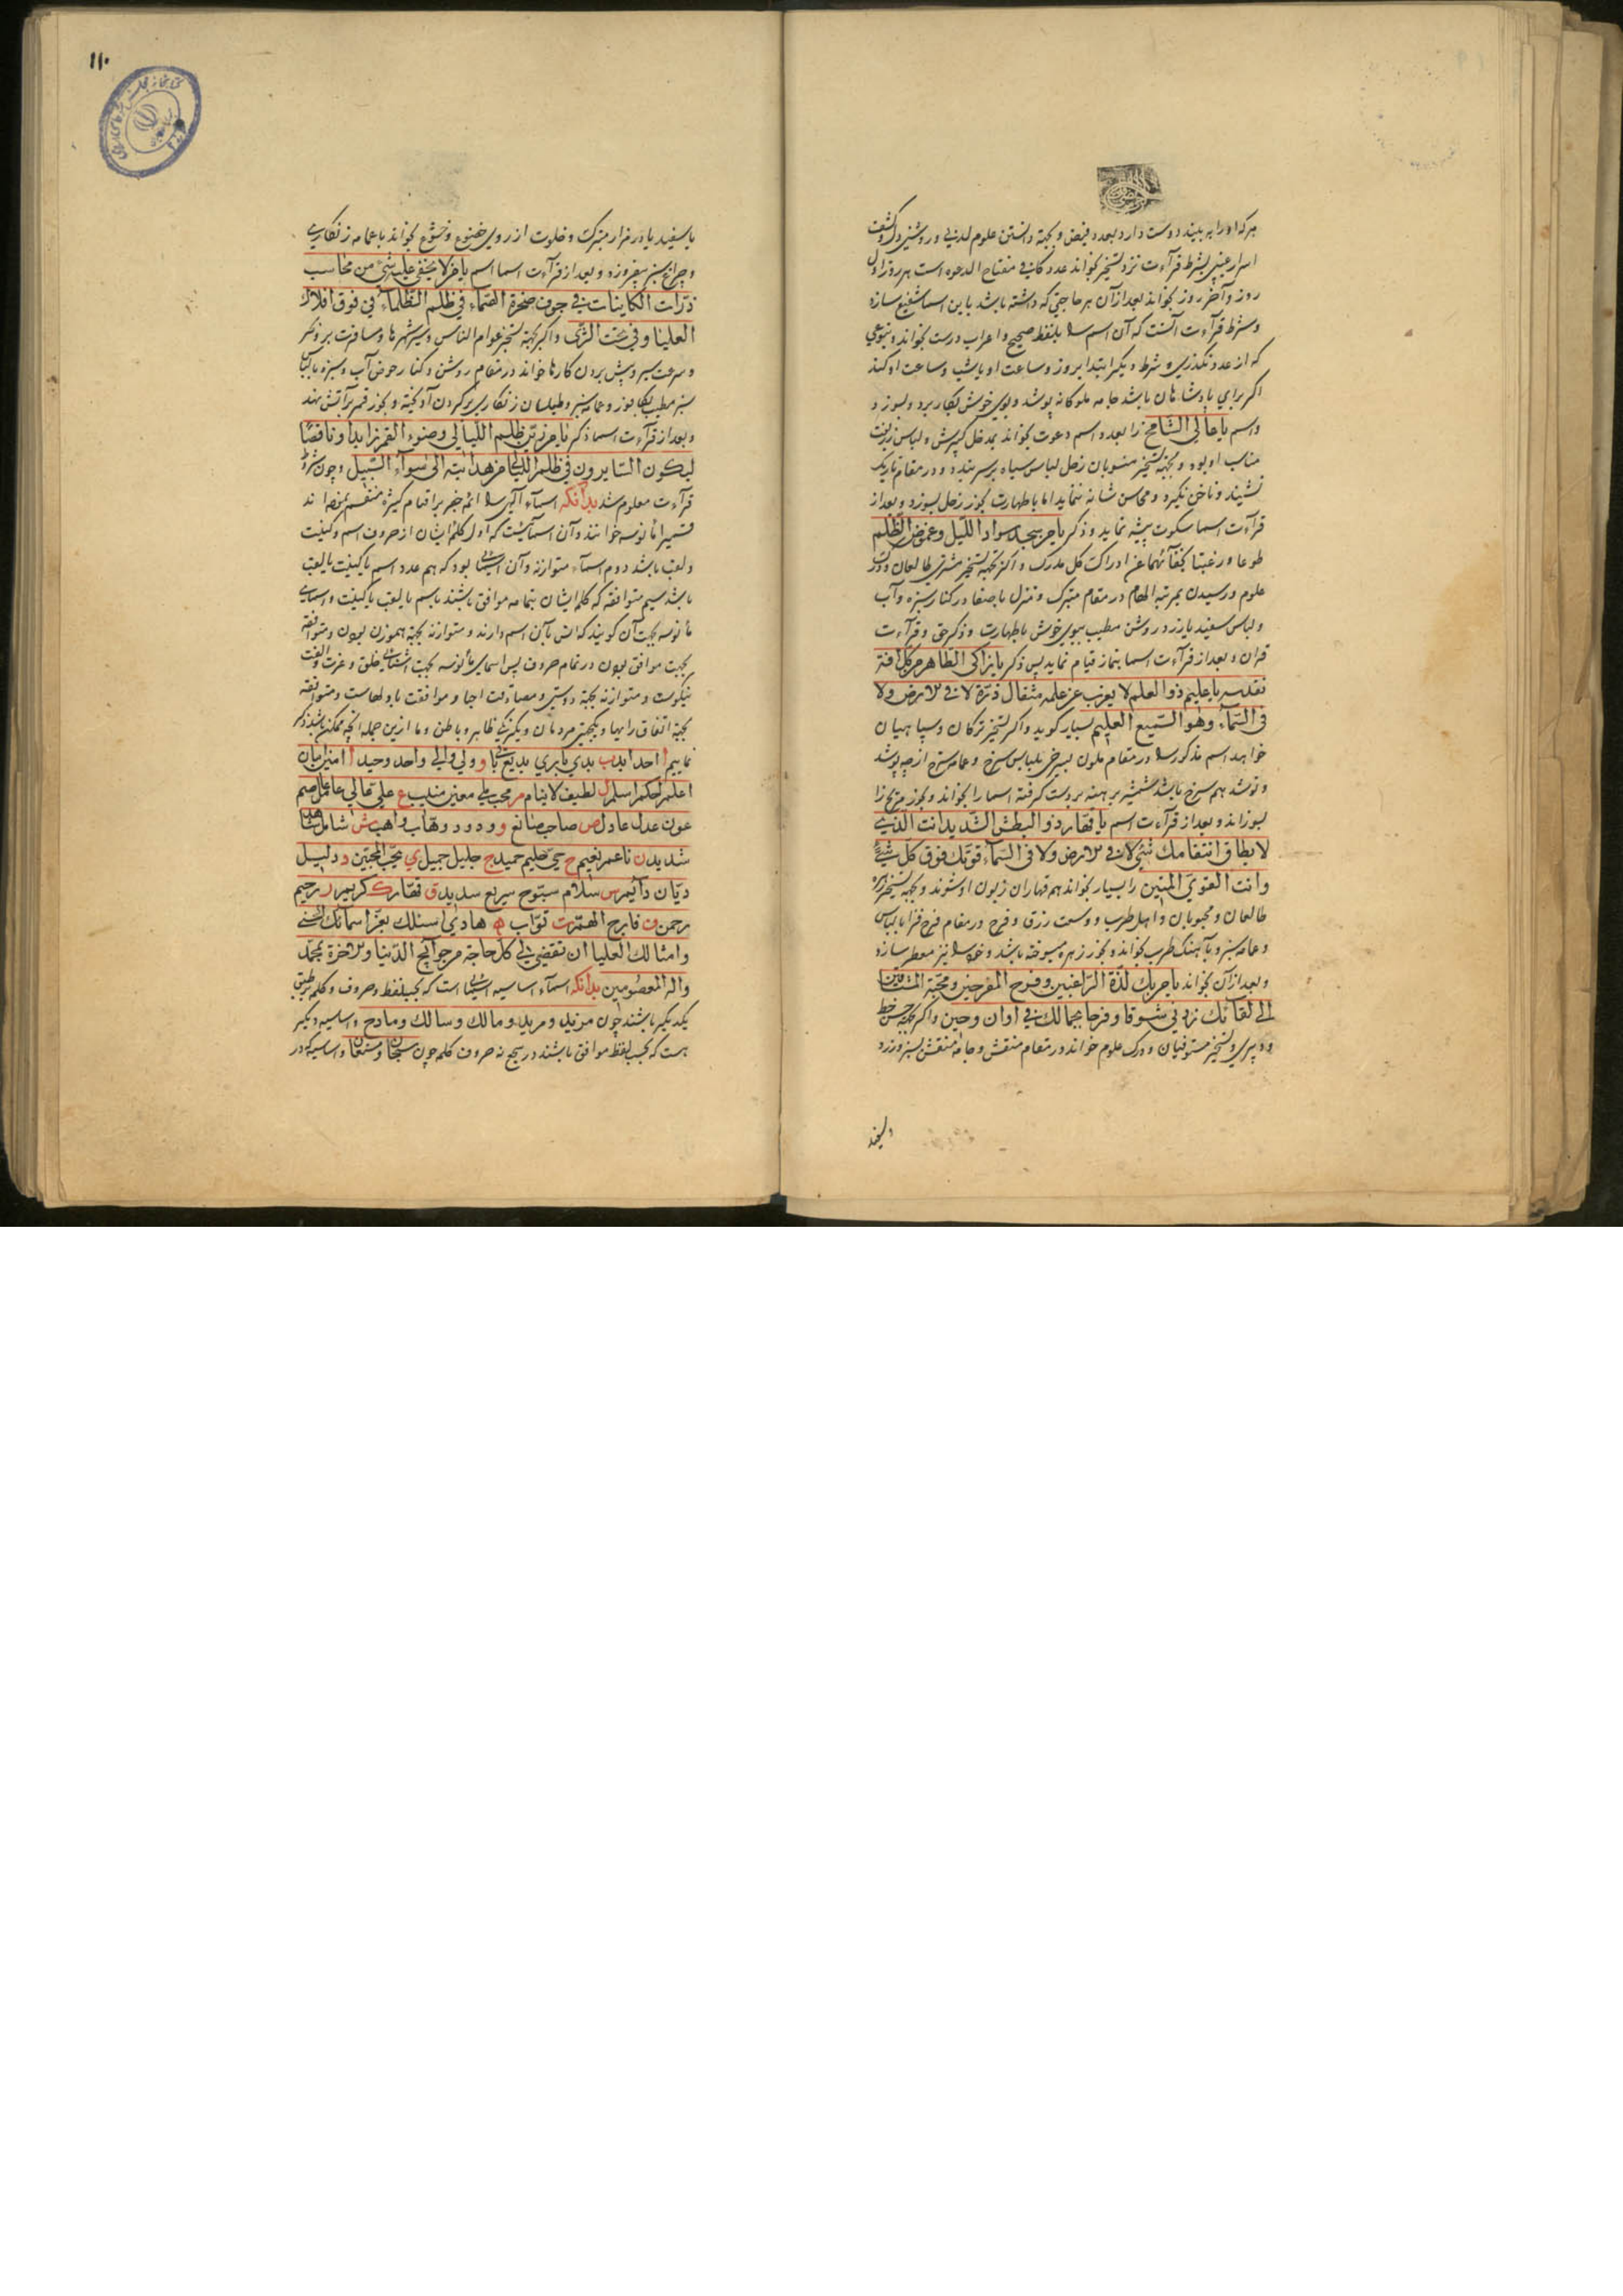 هر که او را به بیند دوست دارد بعدد فیض و بجهة دانستن علوم لدنی و روشنی دل و کشف
اسرار غیبی بشرط قرآءت نزد تسخیر بخواند عدد کافی مفتاح الدعوه است هر روز اول
روز و آخر روز بخواند بعد از آن هر حاجتی که داشته باشد باین اسما شفیع سازد
و شرط قرآءت آنست که آن اسم را بلفظ صحیح و اعراب درست بخواند و بنوعی
که از عدد نگذرد و شرط دیگر ابتدا بروز و ساعت او یا شب و ساعت او کند
اکر برای پادشاهان باشد جامه ملوکانه پوشد و بوی خوش بکار برد و بسوزد
و اسم یا عالی الشامخ را بعدد اسم دعوت بخواند لباس زربفت
مناسب او بود و بجهة تسخیر منسوبان زحل لباس سیاه بر سر بندد و در مقام تاریک
نشیند و ناخن نکیرد و محاسن شانه ننماید اما باطهارت بخور زحل بسوزد و بعد از
قرآءت اسما سکوت پیشه نماید و ذکر یا من سجد له سواد اللیل و غموض الظلم
طوعا و رغبتا عن ادراکت کل مدرک و اکر بجهة تسخیر مشتری طالعان و درک
علوم و رسیدن بمرتبه الهام در مقام متبرک و منزل باصفا در کنار سبزه و آب
و لباس سفید یا زرد روشن مطیب ببوی خوش باطهارت و ذکر حق و قرآءت
قران و بعد از قرآءت اسما بنماز قیام نماید پس ذکر یا زاکی الطاهر من کل آفة
بقدسه یا علیم ذو العلم لا یعزب عن علمه مثقال ذرة لا فی الارض ولا
فی السمآء وهو السمیع العلیم بسیار کوید و اکر تسخیر ترکان و سپاهیان
خواهد اسم مذکور را در مقام ملون بسرخی بلباس سرخ و عمامه سرخ پوشد
و توشد هم سرخ باشد شمشیر برهنه بر دست کرفته اسما را بخواند و بخور مریخ را
بسوزاند و بعد از قرآءت اسم یا قهار ذو البطش الشدید انت الذی
لا یطاق انتقامک شئ لا فی الارض ولا فی السمآء قوتک فوق کل شئ
وانت القوی المتین را بسیار بخواند همه قهاران زبون او شوند و بجهة تسخیر زهره
طالعان و محبوبان و اهل طرب و وسعت رزق و فرح در مقام فرح فزا با لباس
و عمامه سبز و بآهنک طرب بخواند و بخور زهره میسوخته باشد و خود را نیز معطر سازد
و بعد از آن بخواند یا من بک لذة الراغبین و فرح المفرحین و محبة المشتاقین
الی لقائک زدنی شوقا و فرحا بجمالک فی اوان و حین و اکر بجهة حسن خط
و دبیری و تسخیر مستوفیان و درک علوم خواند در مقام منقش و جامه منقش بسبز و زرد
۱۱۰
یا سفید یا در مزار متبرک و خلوت از روی خضوع و خشوع بخواند با عمامه زنکاری
و چراغ سبز بیفروزد و بعد از قرآءت اسما اسم یا من لا یخفی علیه شئ من محاسب
ذرات الکاینات فی جوف صخرة الصمآء فی ظلم الظلمآء فی فوق افلاک
العلیا و فی تحت الثری و اکر بجهة تسخیر عوام الناس و سیر شهرها و مسافرت بر و بحر
و سرعت سیر و پیش بردن کارها خواند در مقام روشن و کنار حوض آب و سبزه با لباس
سبز مطیب بکافور و عمامه سبز و طیلسان زنکاری بر کردن آویخته و بخور قمر بر آتش نهد
و بعد از قرآءت اسما ذکر یا من زین ظلم اللیالی و ضوء القمر زایدا و ناقصا
لیکون السایرون فی ظلم اللیالی من هدایته الی سوآء السبیل و چون شروط
قرآءت معلوم شد بدانکه اسمآء الهی را ائمه جفر بر اقسام کثیره منقسم نموده اند
قسمی را مانوسه خوانند و آن اسمآئیست که اول کلمه ایشان از حروف اسم و کنیت
و لقب باشد دوم اسمآء متوازنه و آن اسمائی بود که هم عدد اسم یا کنیت یا لقب
باشد سیم متوافقه که کلمه ایشان بتمامه موافق باشند باسم یا لقب یا کنیت و اسمای
مانوسه بجهت آن کویند که انس بآن اسم دارند و متوازنه بجهة هموزن بودن و متوافقه
بجهت موافق بودن در تمام حروف پس اسمای مانوسه بجهت خلق و عزت و الفت
نیکوست و متوازنه بجهة دوستی و مصادقت احبا و موافقت باولهاست و متوافقه
بجهة اتفاق رایها و یکجهتی مردمان و یکرنکی ظاهر و باطن و ما ازین جمله انچه ممکن باشد ذکر
نماییم ا احد ابد ب بدی باری بدیع باقی و ولی والی واحد وحید ا امین امان
اعلم احکم اسلم ل لطیف لاینام م محب محیی معین منیب ع علی عالی عاصم
عون عدل عادل ص صاحب صانع و ودود وهاب واهب ش شامل شاهد
شدید ن ناعم نعیم ح حی حلیم حمید ج جلیل جمیل ی یحب المحبین د دلیل
دیان دآئم س سلام سبوح سریع سدید ق قهار ک کریم ر رحیم
رحمن ف فارج الهم ت تواب ه هادی اسئلک بعز اسمائک الحسنی
وامثالک العلیا ان تقضی لی کل حاجة من حوآئج الدنیا والاخرة بمحمد
واله المعصومین بدانکه اسمآء اساسیه اسمائی است که بحسب لفظ و حروف و کلمه مطابق
یکدیکر باشند چون مزید و مرید و مالک و سالک و مادح و اساسیه دیکر
هست که بحسب لفظ موافق باشند در سجع نه حروف کلمه چون سبحان و سلطان و اساسیه که در